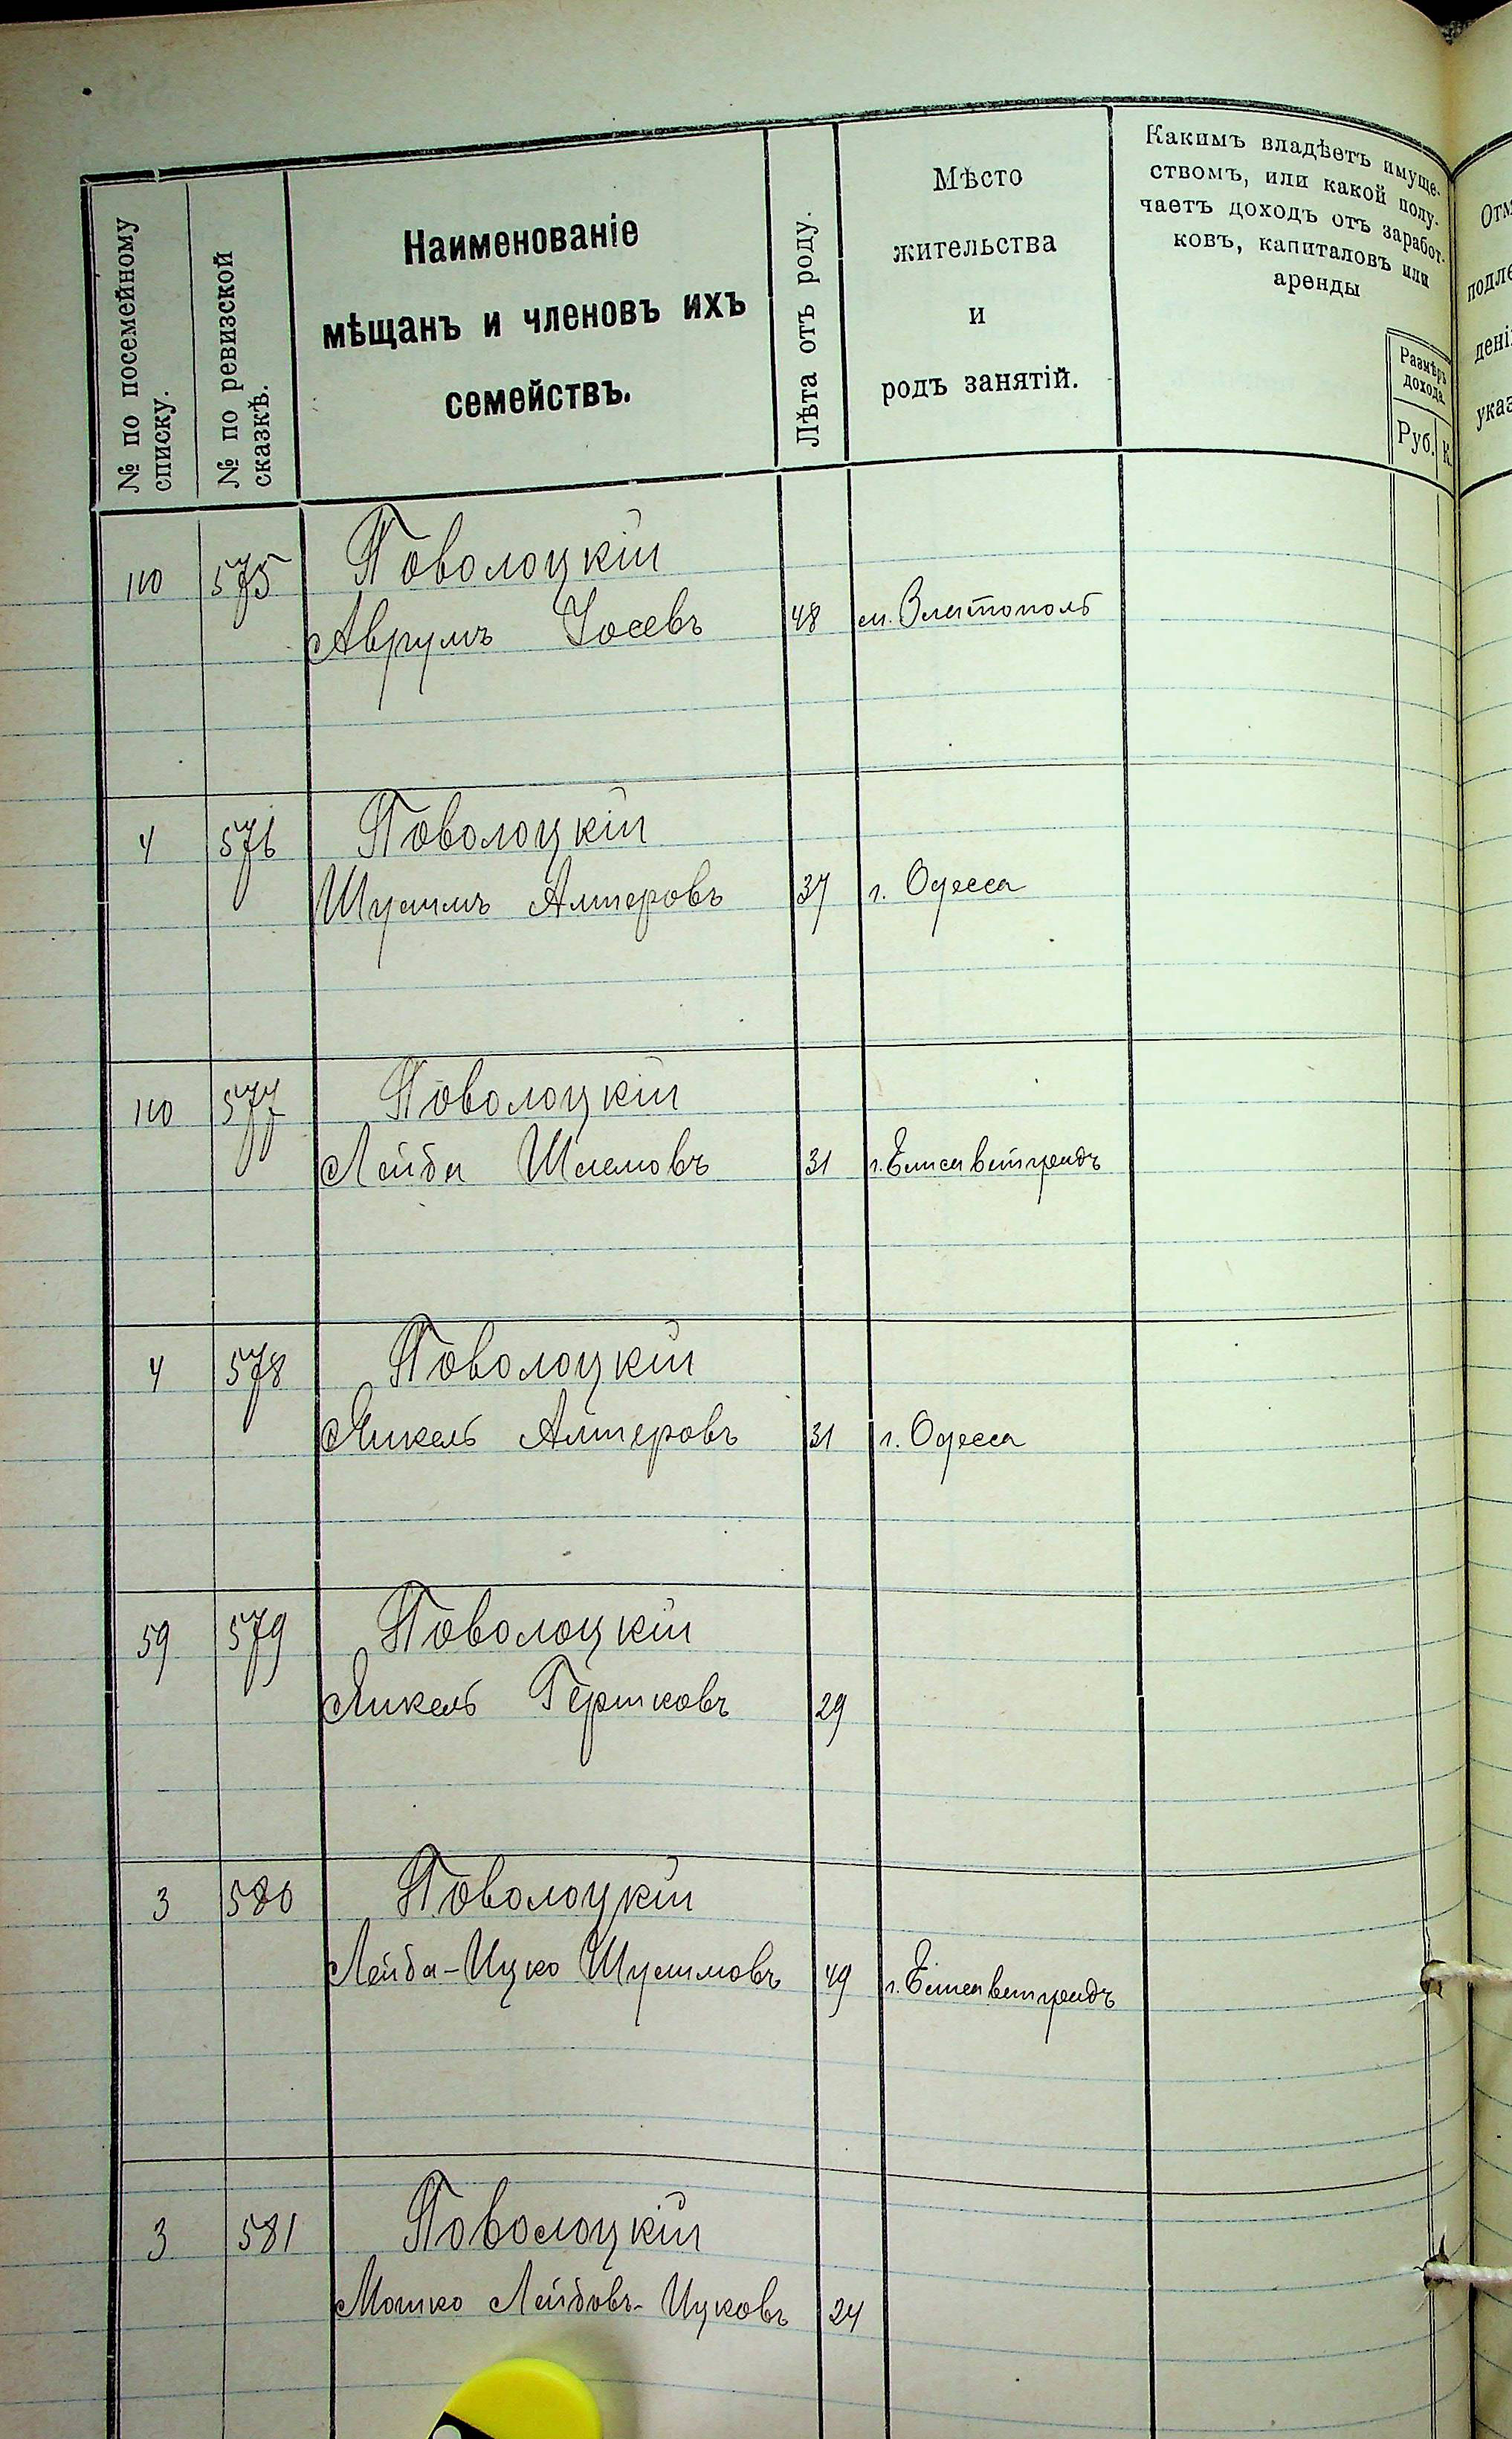 № по посемейному
списку.
№ по ревизской
сказкѣ.
Наименованіе
мѣщанъ и членовъ ихъ
семействъ.
Лѣта отъ роду.
Мѣсто
жительства
и
родъ занятій.
Какимъ владѣетъ имуще-
ствомъ, или какой полу-
чаетъ доходъ отъ заработ-
ковъ, капиталовъ или
аренды
Размѣръ
дохода.
Руб. К.
110 575 Поволоцкій
Аврумъ Іосевъ 48 м. Златополь
4 576 Поволоцкій
Шулимъ Алтеровъ 37 г. Одесса
110 577 Поволоцкій
Лейба Шлемовъ 31 г. Елисаветградъ
4 578 Поволоцкій
Янкель Алтеровъ 31 г. Одесса
59 579 Поволоцкій
Янкель Гершковъ 29
3 580 Поволоцкій
Лейба-Ицко Шулимовъ 49 г. Елисаветградъ
3 581 Поволоцкій
Мошко Лейбовъ-Ицковъ 24